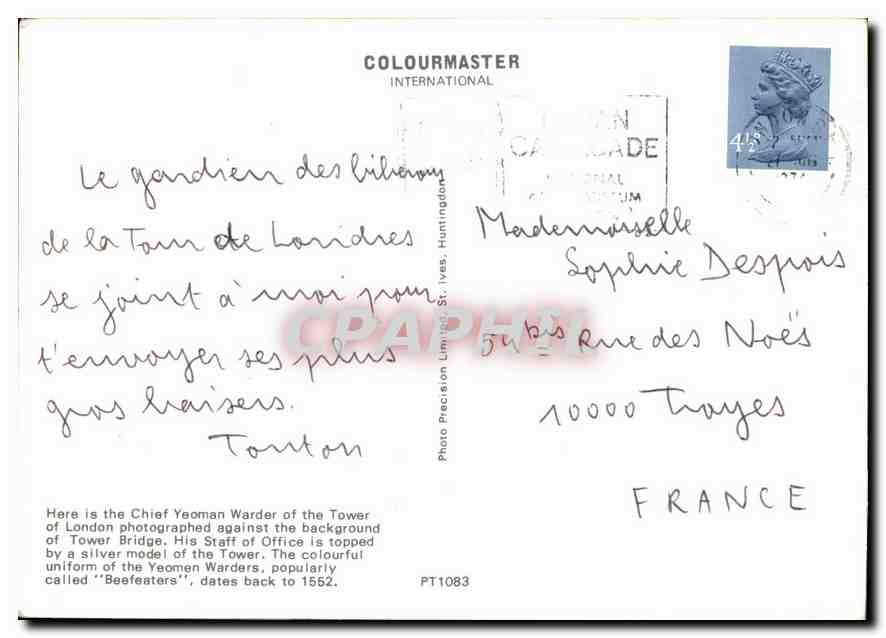 COLOURMASTER
INTERNATIONAL
4½P
CADE
Le gardien des biberons
de la Tour de Londres
se joint à moi pour
t'envoyer ses plus
gros baisers.
Tonton
Photo Precision Limited, St. Ives, Huntingdon
Mademoiselle
Sophie Despois
54 bis Rue des Noës
10000 Troyes
FRANCE
CPAPHIL
Here is the Chief Yeoman Warder of the Tower
of London photographed against the background
of Tower Bridge. His Staff of Office is topped
by a silver model of the Tower. The colourful
uniform of the Yeomen Warders, popularly
called "Beefeaters", dates back to 1552.
PT1083